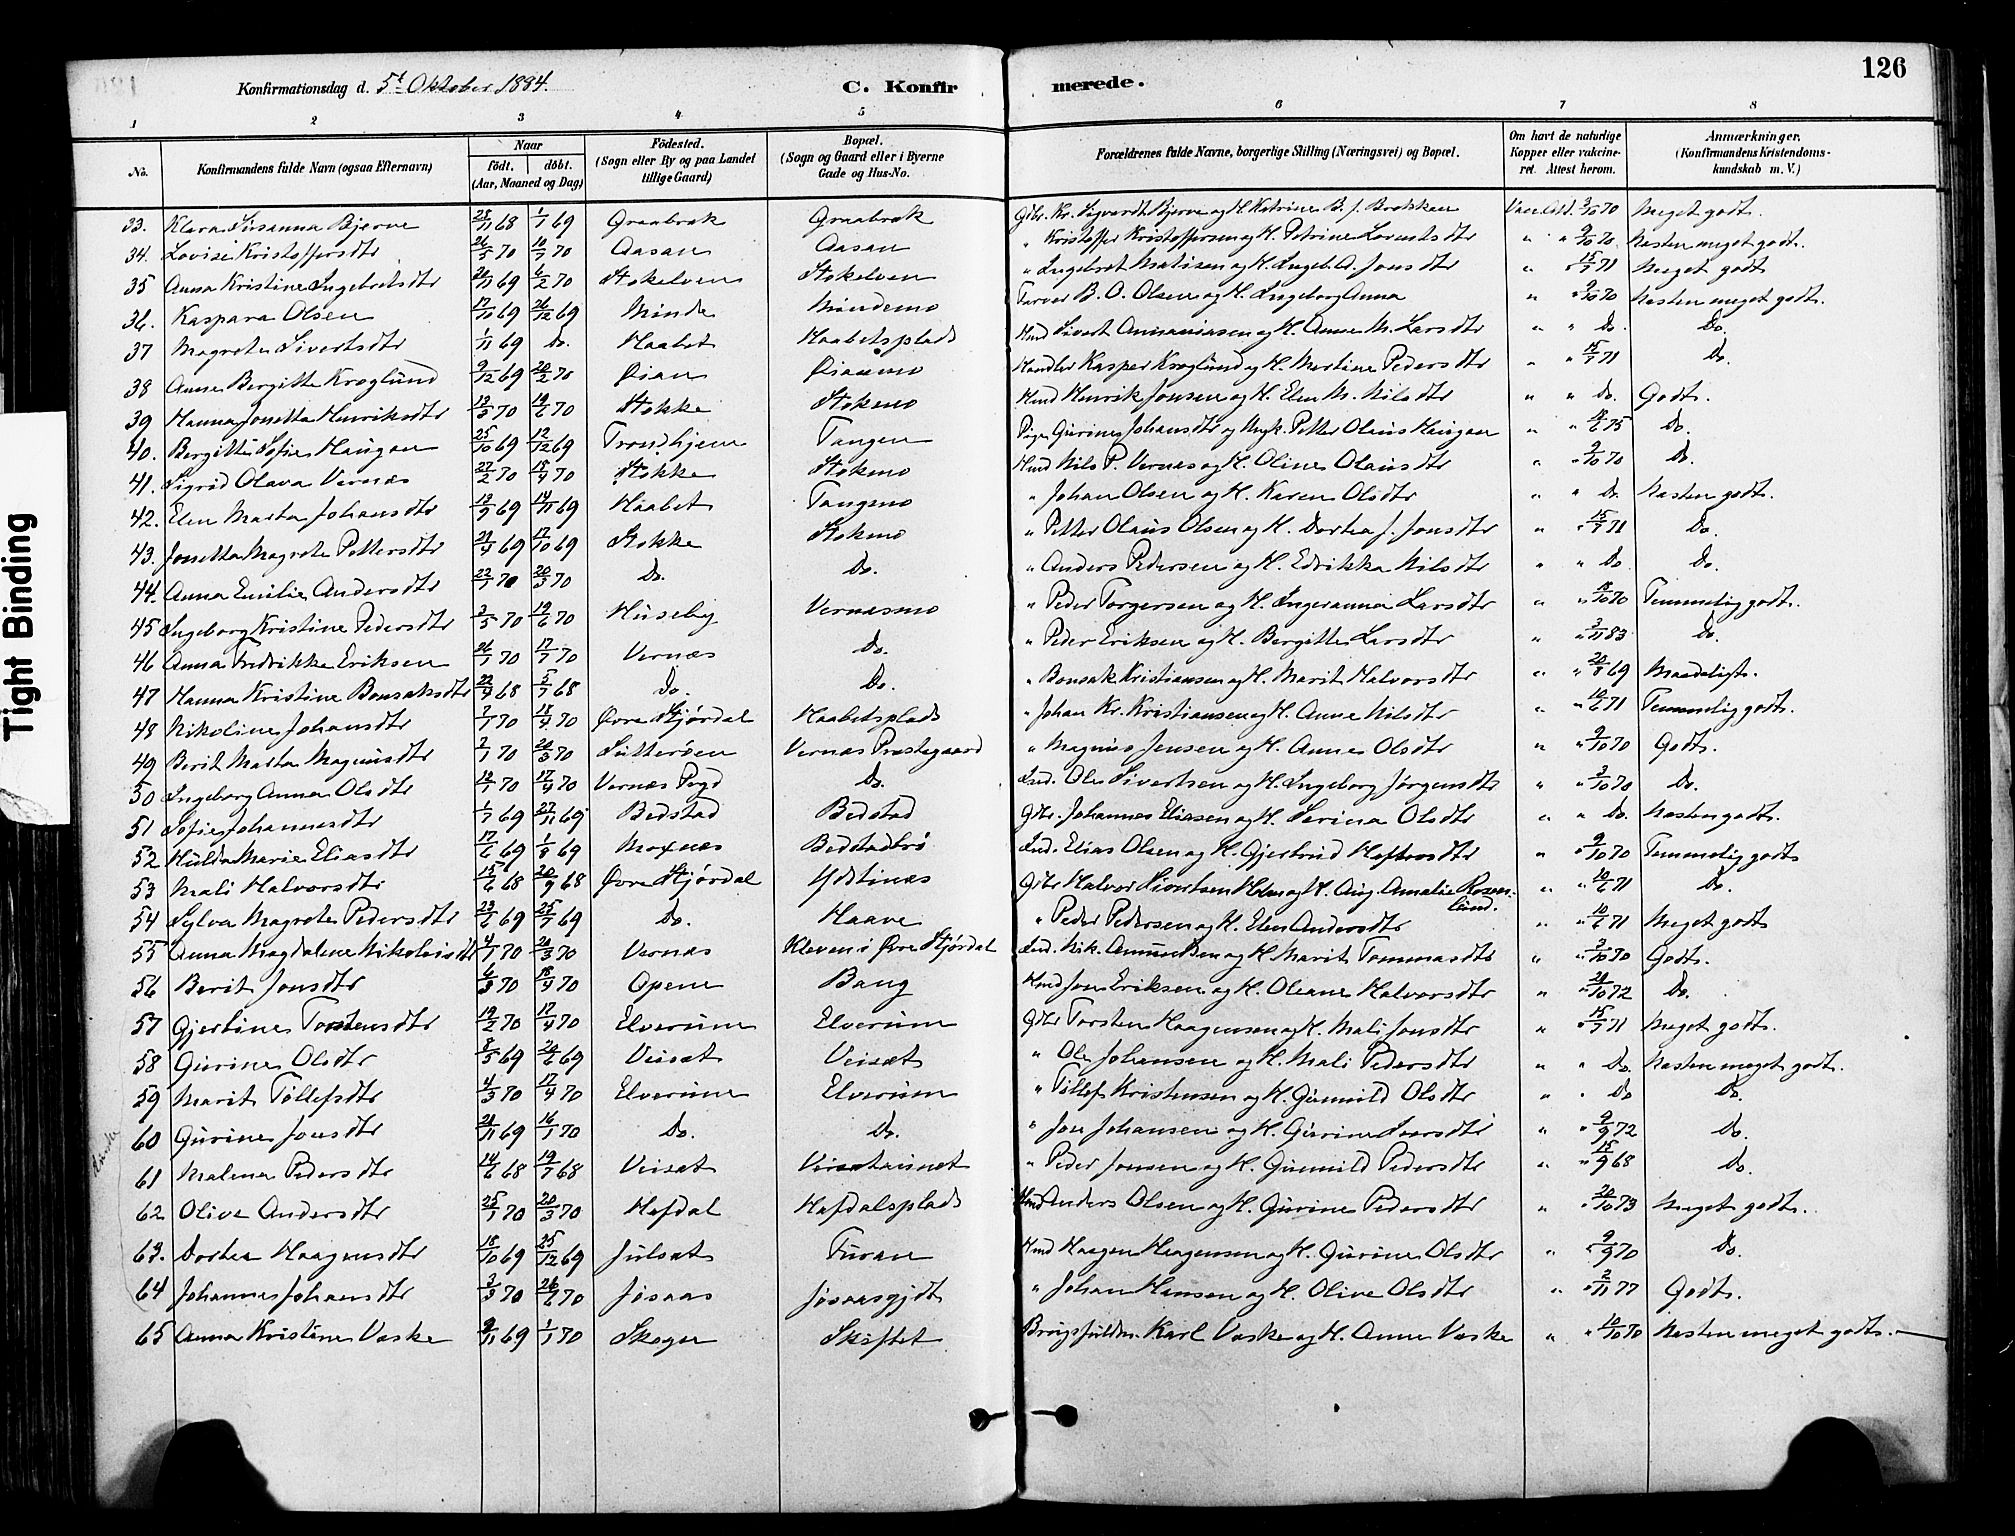 126
Konfirmationsdag d. 5t Oktober 1884. C. Konfirmerede.
1 2 3 4 5 6 7 8
No. Konfirmandens fulde Navn (ogsaa Efternavn) Naar født. døbt. (Aar, Maaned og Dag) Fødested. (Sogn eller By og paa Landet tillige Gaard) Bopæl. (Sogn og Gaard eller i Byerne Gade og Hus-No. Forældrenes fulde Navne, borgerlige Stilling (Næringsvei) og Bopæl. Om havt de naturlige Kopper eller vakcineret. Attest herom. Anmærkninger, (Konfirmandens Kristendomskundskab m. V.)
33. Klara Susanna Bjerve 28/11 68 1/1 69 Graabræk Graabræk Gbr. Kr. Sigvardt Bjerve og H. Katrine B. J. Meget godt.
34. Lovise Kristoffersdtr 26/5 70 10/7 70 Aasan Aasan " Kristoffer Kristoffersen og H. Petrine Lorentsdtr " " 9/10 70 Næsten meget godt.
35 Anna Kristine Ingebretsdtr 20/11 69 6/2 70 Stokelven Stokelven " Ingebret Matisen og H. Ingeb. A. Jonsdtr " " 15/7 71 Meget godt
36. Kaspara Olsen 17/10 69 26/12 69 Minde Mindemo Farver B. O. Olsen og H. Ingeborg Anna " " 9/10 70 Næsten meget godt.
37 Magrete Sivertsdtr 1/11 69 Do. Haabet Haabetsplads Hmd Sivert Annaniasen og H. Anne M. Larsdtr " " Do. Do.
38 Anne Bergitte Kroglund 9/12 69 20/2 70 Øian Øianmo Handler Kasper Kroglund og H. Martine Pedersdtr " " 15/7 71 Do.
39 Hanna Jonetta Henriksdtr 13/3 70 19/6 70 Stokke Stokmo Hmd Henrik Jonsen og H. Elen M. Nilsdtr " " Do. Godt.
40. Bergitte Sofie Haugan 25/10 69 12/12 69 Trondhjem Tangen Pige Gurine Johansdtr og Ungk. Petter Olaus Haugan " " Do.
41. Sigrid Olava Vernæs 27/2 70 18/4 70 Stokke Stokmo Hmd Nils P. Vernæs og H. Oline Olausdtr " " 9/10 70 Do.
42. Elen Marta Johansdtr 13/9 69 14/11 69 Haabet Tangmo " Johan Olsen og H. Karen Olsdtr " " Do. Næsten godt.
43. Jonetta Magrete Pettersdtr 69 17/10 69 Stokke Stokmo " Petter Olaus Olsen og H. Dortea J. Jonsdtr " " 15/7 71 Do.
44. Anna Emilie Andersdtr 22/1 70 20/3 70 Do. Do. " Anders Pedersen og H. Edvikka Nilsdtr " " Do Do.
45 Ingeborg Kristine Pedersdtr 3/5 70 19/6 70 Huseby Vernæsmo " Peder Torgersen og H. Ingeranna Larsdtr " " 70 Temmelig godt.
46 Anna Fredrikke Eriksen 26/1 70 17/7 70 Vernæs Do. " Peder Eriksen og H. Bergitte Larsdtr " " 3/11 83 Do.
47 Hanna Kristine Bonsaksdtr 22/4 68 5/7 68 Do. Do. " Bonsak Kristiansen og H. Marit Halvorsdtr " " 20/8 69 Maadeligt.
48 Nikoline Johansdtr 7/1 70 18/4 70 Øvre Stjørdal Haabetsplads " Johan Kr. Kristiansen og H. Anne Nilsdtr " " 10/6 71 Temmelig godt.
49 Berit Marta Magnusdtr 7/1 70 20/3 70 Sutterøen Vernæs Præstegaard " Magnus Jensen og H. Anne Olsdtr " " 9/10 70 Godt.
50 Ingeborg Anna Olsdtr 70 17/4 70 Vernæs Do. Ind. Ole Sivertsen og H. Ingeborg Jørgensdtr " " 3/10 70 Do.
51 Sofie Johannesdtr 1/7 69 69 Bedstad Bedstad Gbr. Johannes Eliasen og H. Serina Olsdtr " " Do. Næsten godt.
52 Hulda Marie Eliasdtr 17/6 69 1/8 69 Moxnæs Bedstadbrö Ind. Elias Olsen og H. Gjertrud " " 9/10 70 Temmelig godt
53 Mali Halvorsdtr 15/6 68 20/9 68 Øvre Stjørdal Ystinæs Gbr Halvor Sivertsen Holm og H. Aug. Amalie Rosenlund. " " 10/6 71 Do.
54 Sylva Magrete Pedersdtr 69 25/7 69 Do. Haave " Peder Pedersen og H. Elen Andersdtr " " 10/6 71 Meget godt
55 Anna Magdalene Nikolaisdtr 4/1 70 20/3 70 Vernæs Kleven i Øvre Stjørdal Ind. Nik. Amundsen og H. Marit Tommasdtr " " 3/10 70 Godt.
56 Berit Jonsdtr 6/3 70 18/4 70 Opem Bang Hmd Jon Eriksen og H. Oleane Halvorsdtr " " 72 Do.
57 Gjertine Torstensdtr 19/2 70 17/4 70 Elverum Elverum Gbr Torsten Haagensen og H. Mali Jonsdtr " " 15/7 71 Meget godt.
58 Gurine Olsdtr 8/5 69 20/6 69 Veisæt Veisæt " Ole Johansen og H. Mali Pedersdtr " " Do. Næsten meget godt.
59 Marit Tollefsdtr 4/3 70 17/4 70 Elverum Elverum " Tollef Kristensen og H. Gunnild Olsdtr " " Do Do.
60 Gurine Jonsdtr 69 16/1 70 Do. Do. " Jon Johansen og H. Gurine Ivarsdtr " " 9/9 72 Do.
61 Malena Pedersdtr 14/6 68 19/7 68 Veisæt " Peder Jonsen og H. Gunnild Pedersdtr " " 15/9 68 Do.
62 Olive Andersdtr 25/1 70 20/3 70 Hofdal Hofdalsplads Hmd Anders Olsen og H. Gurine Pedersdtr " " 20/10 73 Meget godt.
63. Dortea Haagensdtr 18/10 69 25/12 69 Julsæt Furan Hmd Haagen Haagensen og H. Gurine Olsdtr " " 9/9 70 Do.
64 Johanne Johansdtr 3/3 70 26/6 70 Jøsaas Jøsaasgjdt " Johan Hansen og H. Olive Olsdtr " " 2/11 77 Godt.
65 Anna Kristine Vaske 9/11 69 1/1 70 Skogn Skiftet Brugsfuldm. Karl Vaske og H. Anne Vaske " " 10/10 70 Næsten meget godt.
Tight Binding